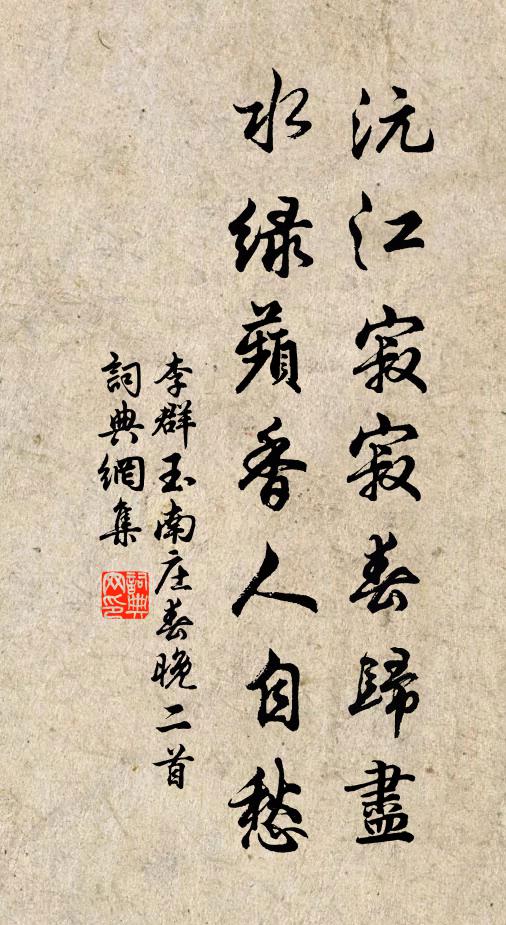 沅江寂寂春歸盡
水绿蘋香人自愁
李群玉南庄春晚二首
詞典網集
詞典网印